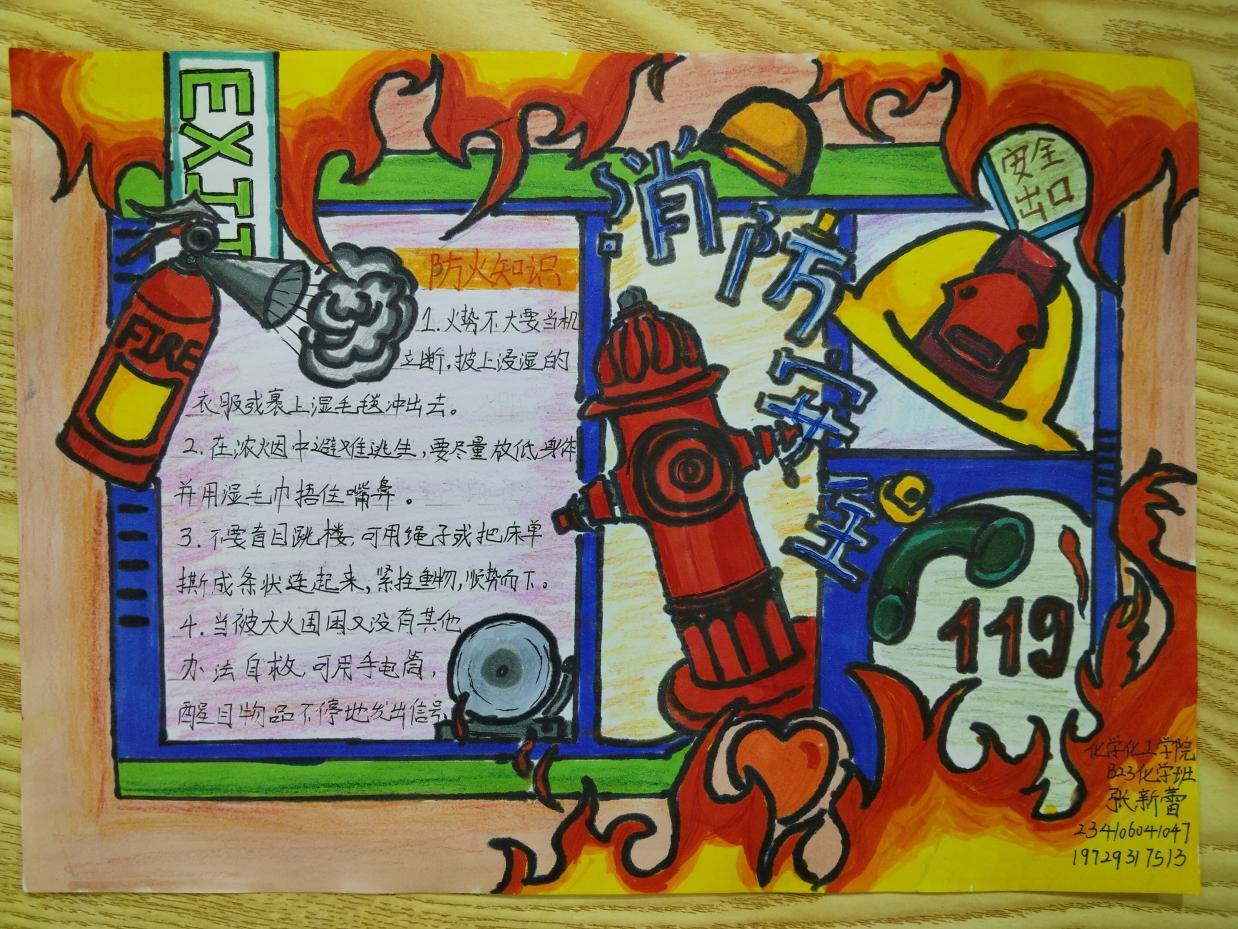 EXIT
消防安全
安全
出口
FIRE
防火知识
1.火势不大要当机
立断,披上浸湿的
衣服或裹上湿毛毯冲出去。
2.在浓烟中避难逃生,要尽量放低身体
并用湿毛巾捂住嘴鼻。
3.不要盲目跳楼,可用绳子或把床单
撕成条状连起来,紧拴重物,顺势而下。
4.当被大火围困又没有其他
办法自救,可用手电筒,
醒目物品不停地发出信号
119
化学化工学院
B23化学班
张新蕾
234106041047
19729317513